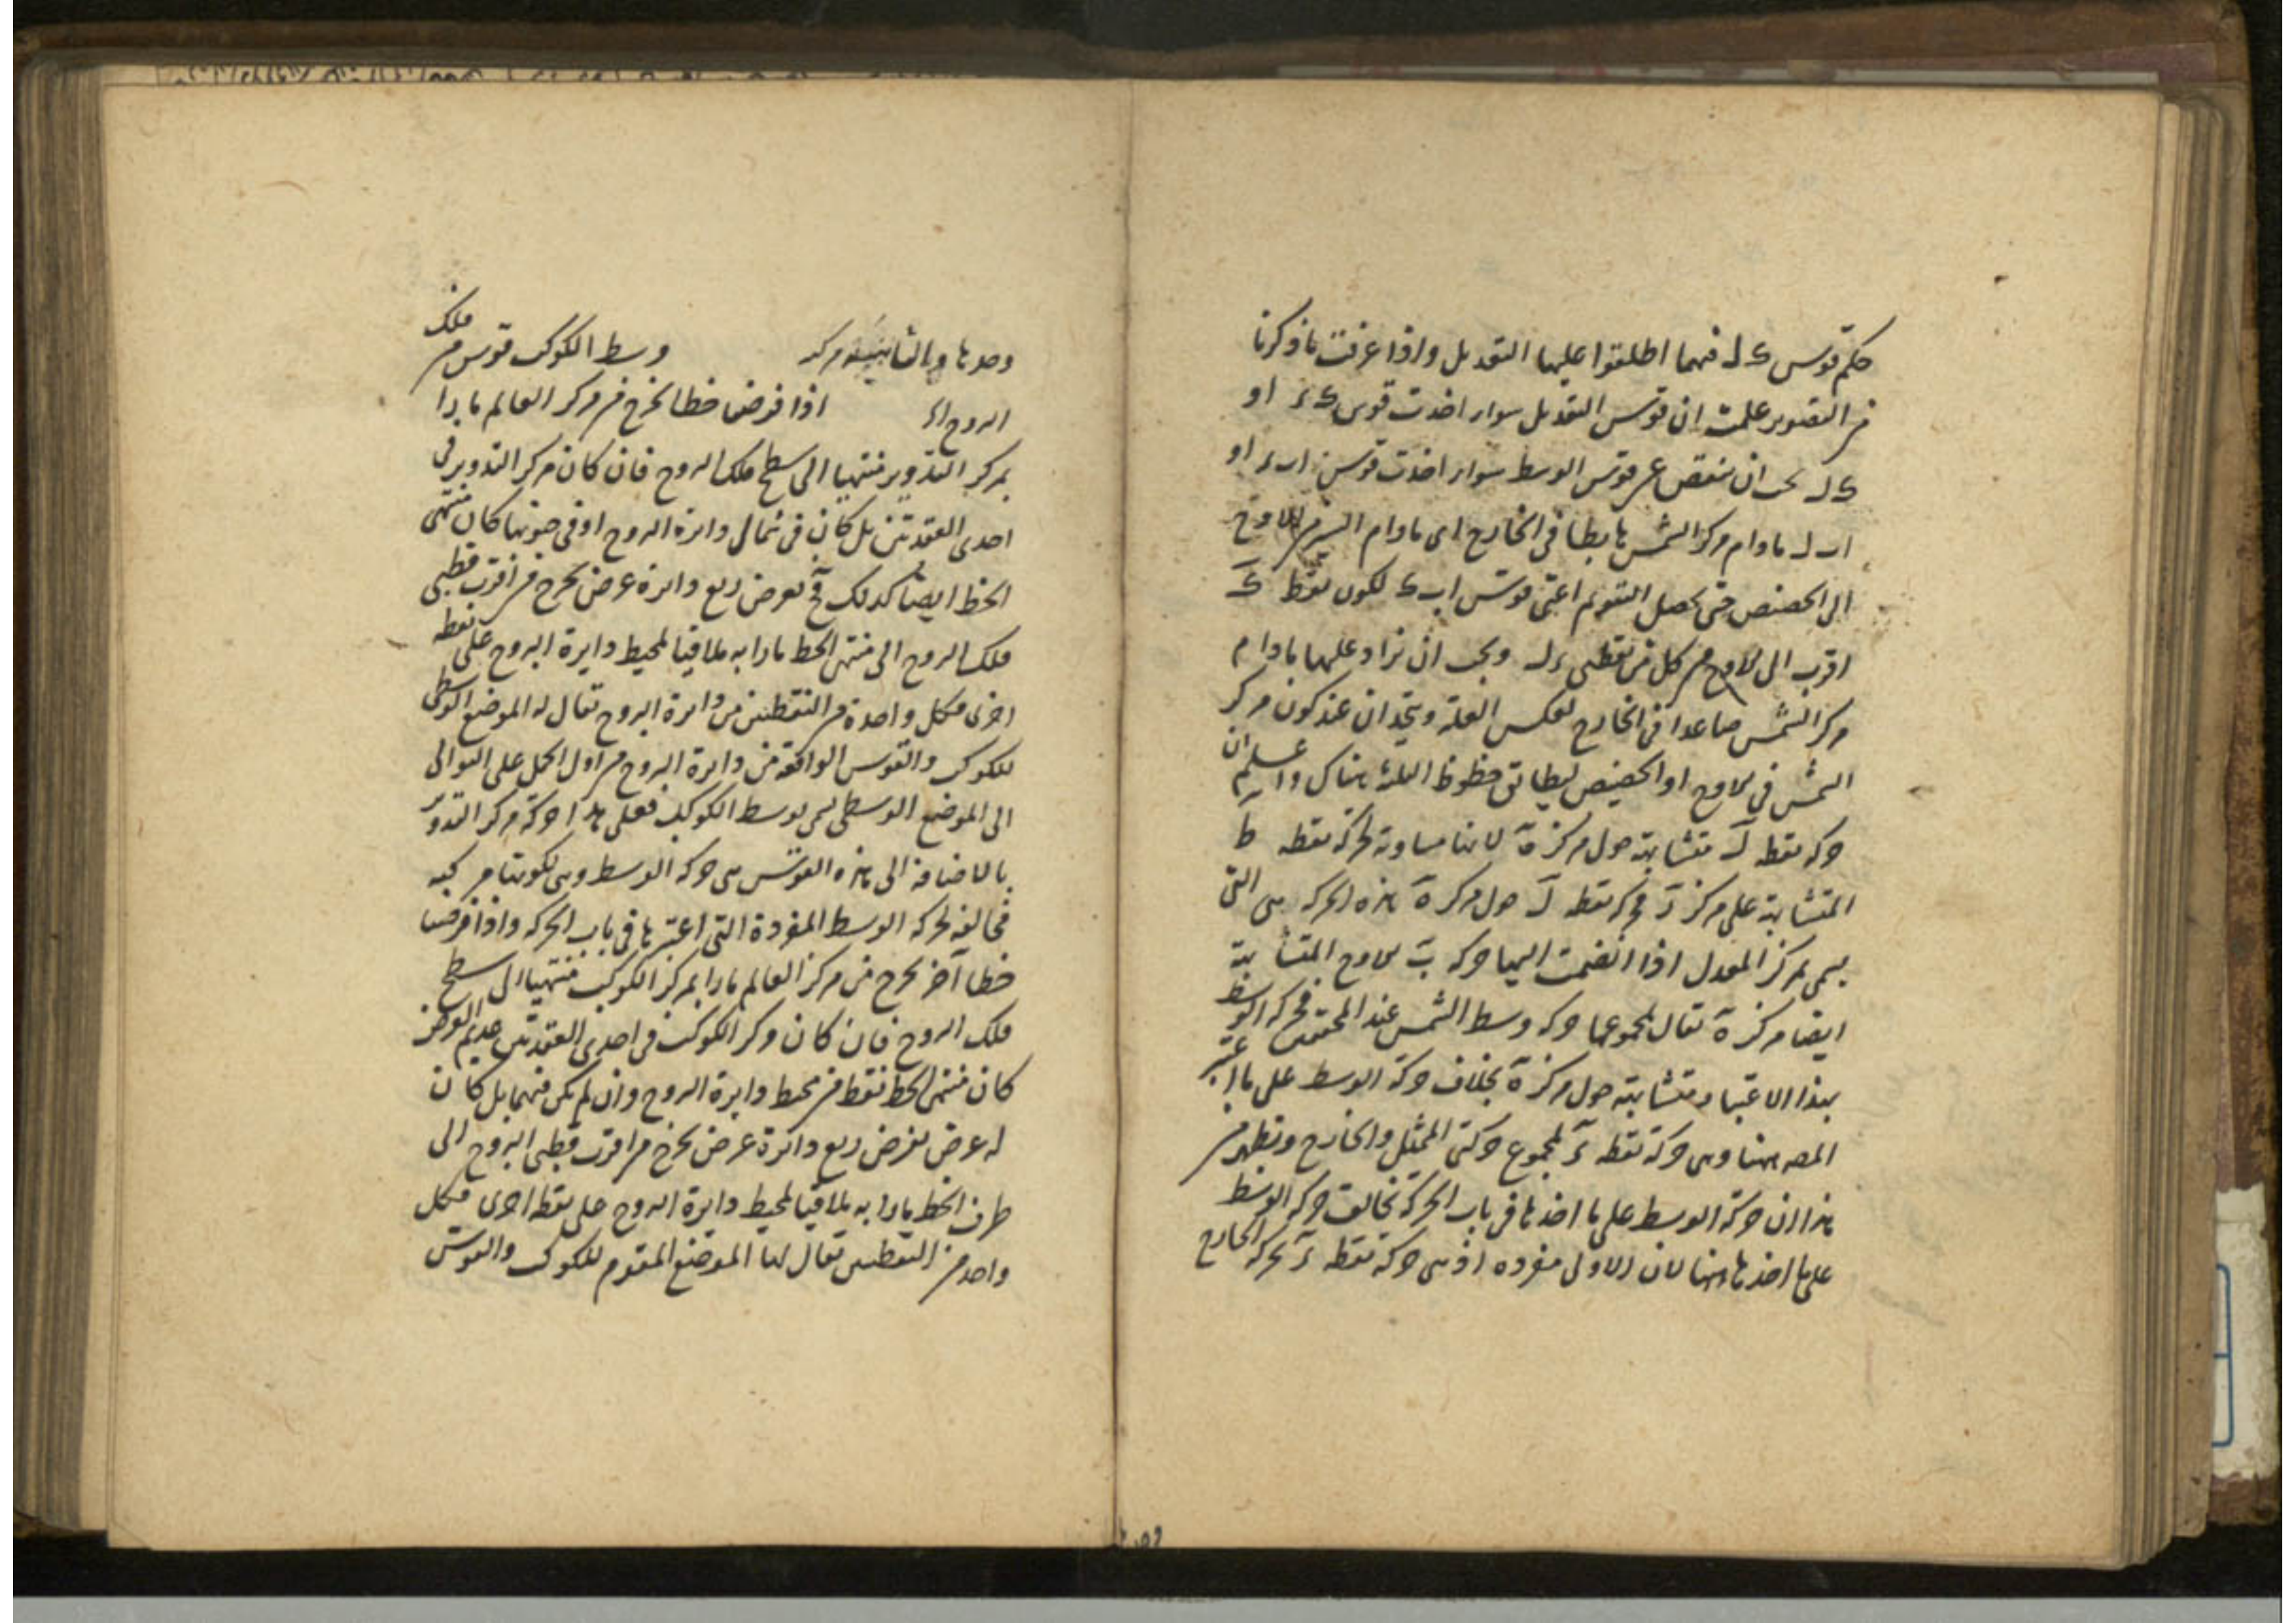 حكم قوس ك ل فيهما اطلقوا عليها التعديل واذا عرفت ما ذكرنا
من التصوير علمت ان قوس التعديل سواء اخذت قوس ك ء او
ك ل يجب ان ينقص عن قوس الوسط سواء اخذت قوس ا ب ء او
ا ب ل مادام مركز الشمس هابطا في الخارج اى مادام السير من الاوج
الى الحضيض حتى يحصل التقويم اعنى قوس ا ب ك لكون نقطة ك
اقرب الى الاوج من كل من نقطتى ء ل ويجب ان تزاد عليها مادام
مركز الشمس صاعدا في الخارج لعكس العلة ويتحدان عند كون مركز
الشمس في الاوج او الحضيض لتطابق خطوط الثلثة هناك واعلم ان
حركة نقطة ل متشابهة حول مركز ه لانها مساوية لحركة نقطة ط
المتشابهة على مركز ر فحركة نقطة ل حول مركز ه هذه الحركة هى التى
يسمى بمركز المعدل اذا انضمت اليها حركة ب الاوج المتشابهة
ايضا مركز ه يقال لمجموعهما حركة وسط الشمس عند المحققين فحركة الوسط
بهذا الاعتبار متشابهة حول مركز ه بخلاف حركة الوسط على ما اعتبر
المصه ههنا وهى حركة نقطة ء لمجموع حركتى الممثل والخارج ويظهر من
هذا ان حركة الوسط على ما اخذها فى باب الحركة تخالف حركة الوسط
على ما اخذها ههنا لان الاولى مفرده اذ هى حركة نقطة ء بحركة الخارج
وحدها والثانية مركبة وسط الكوكب قوس من فلك
البروج اذا فرض خطا يخرج من مركز العالم مارا
بمركز التدوير منتهيا الى سطح فلك البروج فان كان مركز التدوير فى
احدى العقدتين بل كان فى شمال دائرة البروج او فى جنوبها كان منتهى
الخط ايضا كذلك فح نفرض ربع دائرة عرض يخرج من اقرب قطبى
فلك البروج الى منتهى الخط مارا به ملاقيا لمحيط دايرة البروج على نقطة
اخرى فكل واحدة من النقطتين من دايرة البروج يقال له الموضع الوسطى
للكوكب والقوس الواقعة من دايرة البروج من اول الحمل على التوالى
الى الموضع الوسطى يسمى بوسط الكوكب فعلى هذا حركة مركز التدوير
بالاضافة الى هذه القوس هى حركة الوسط وهى لكونها مركبة
مخالفة لحركة الوسط المفردة التى اعتبرها فى باب الحركة واذا فرضنا
خطا آخر يخرج من مركز العالم مارا بمركز الكوكب منتهيا الى سطح
فلك البروج فان كان مركز الكوكب فى احدى العقدتين عديم العرض
كان منتهى الخط نقطة من محيط دايرة البروج وان لم يكن فيهما بل كان
له عرض نفرض ربع دائرة عرض يخرج من اقرب قطبى البروج الى
طرف الخط مارا به ملاقيا لمحيط دايرة البروج على نقطة اخرى فكل
واحد من النقطتين يقال لها الموضع المقوم للكوكب والقوس